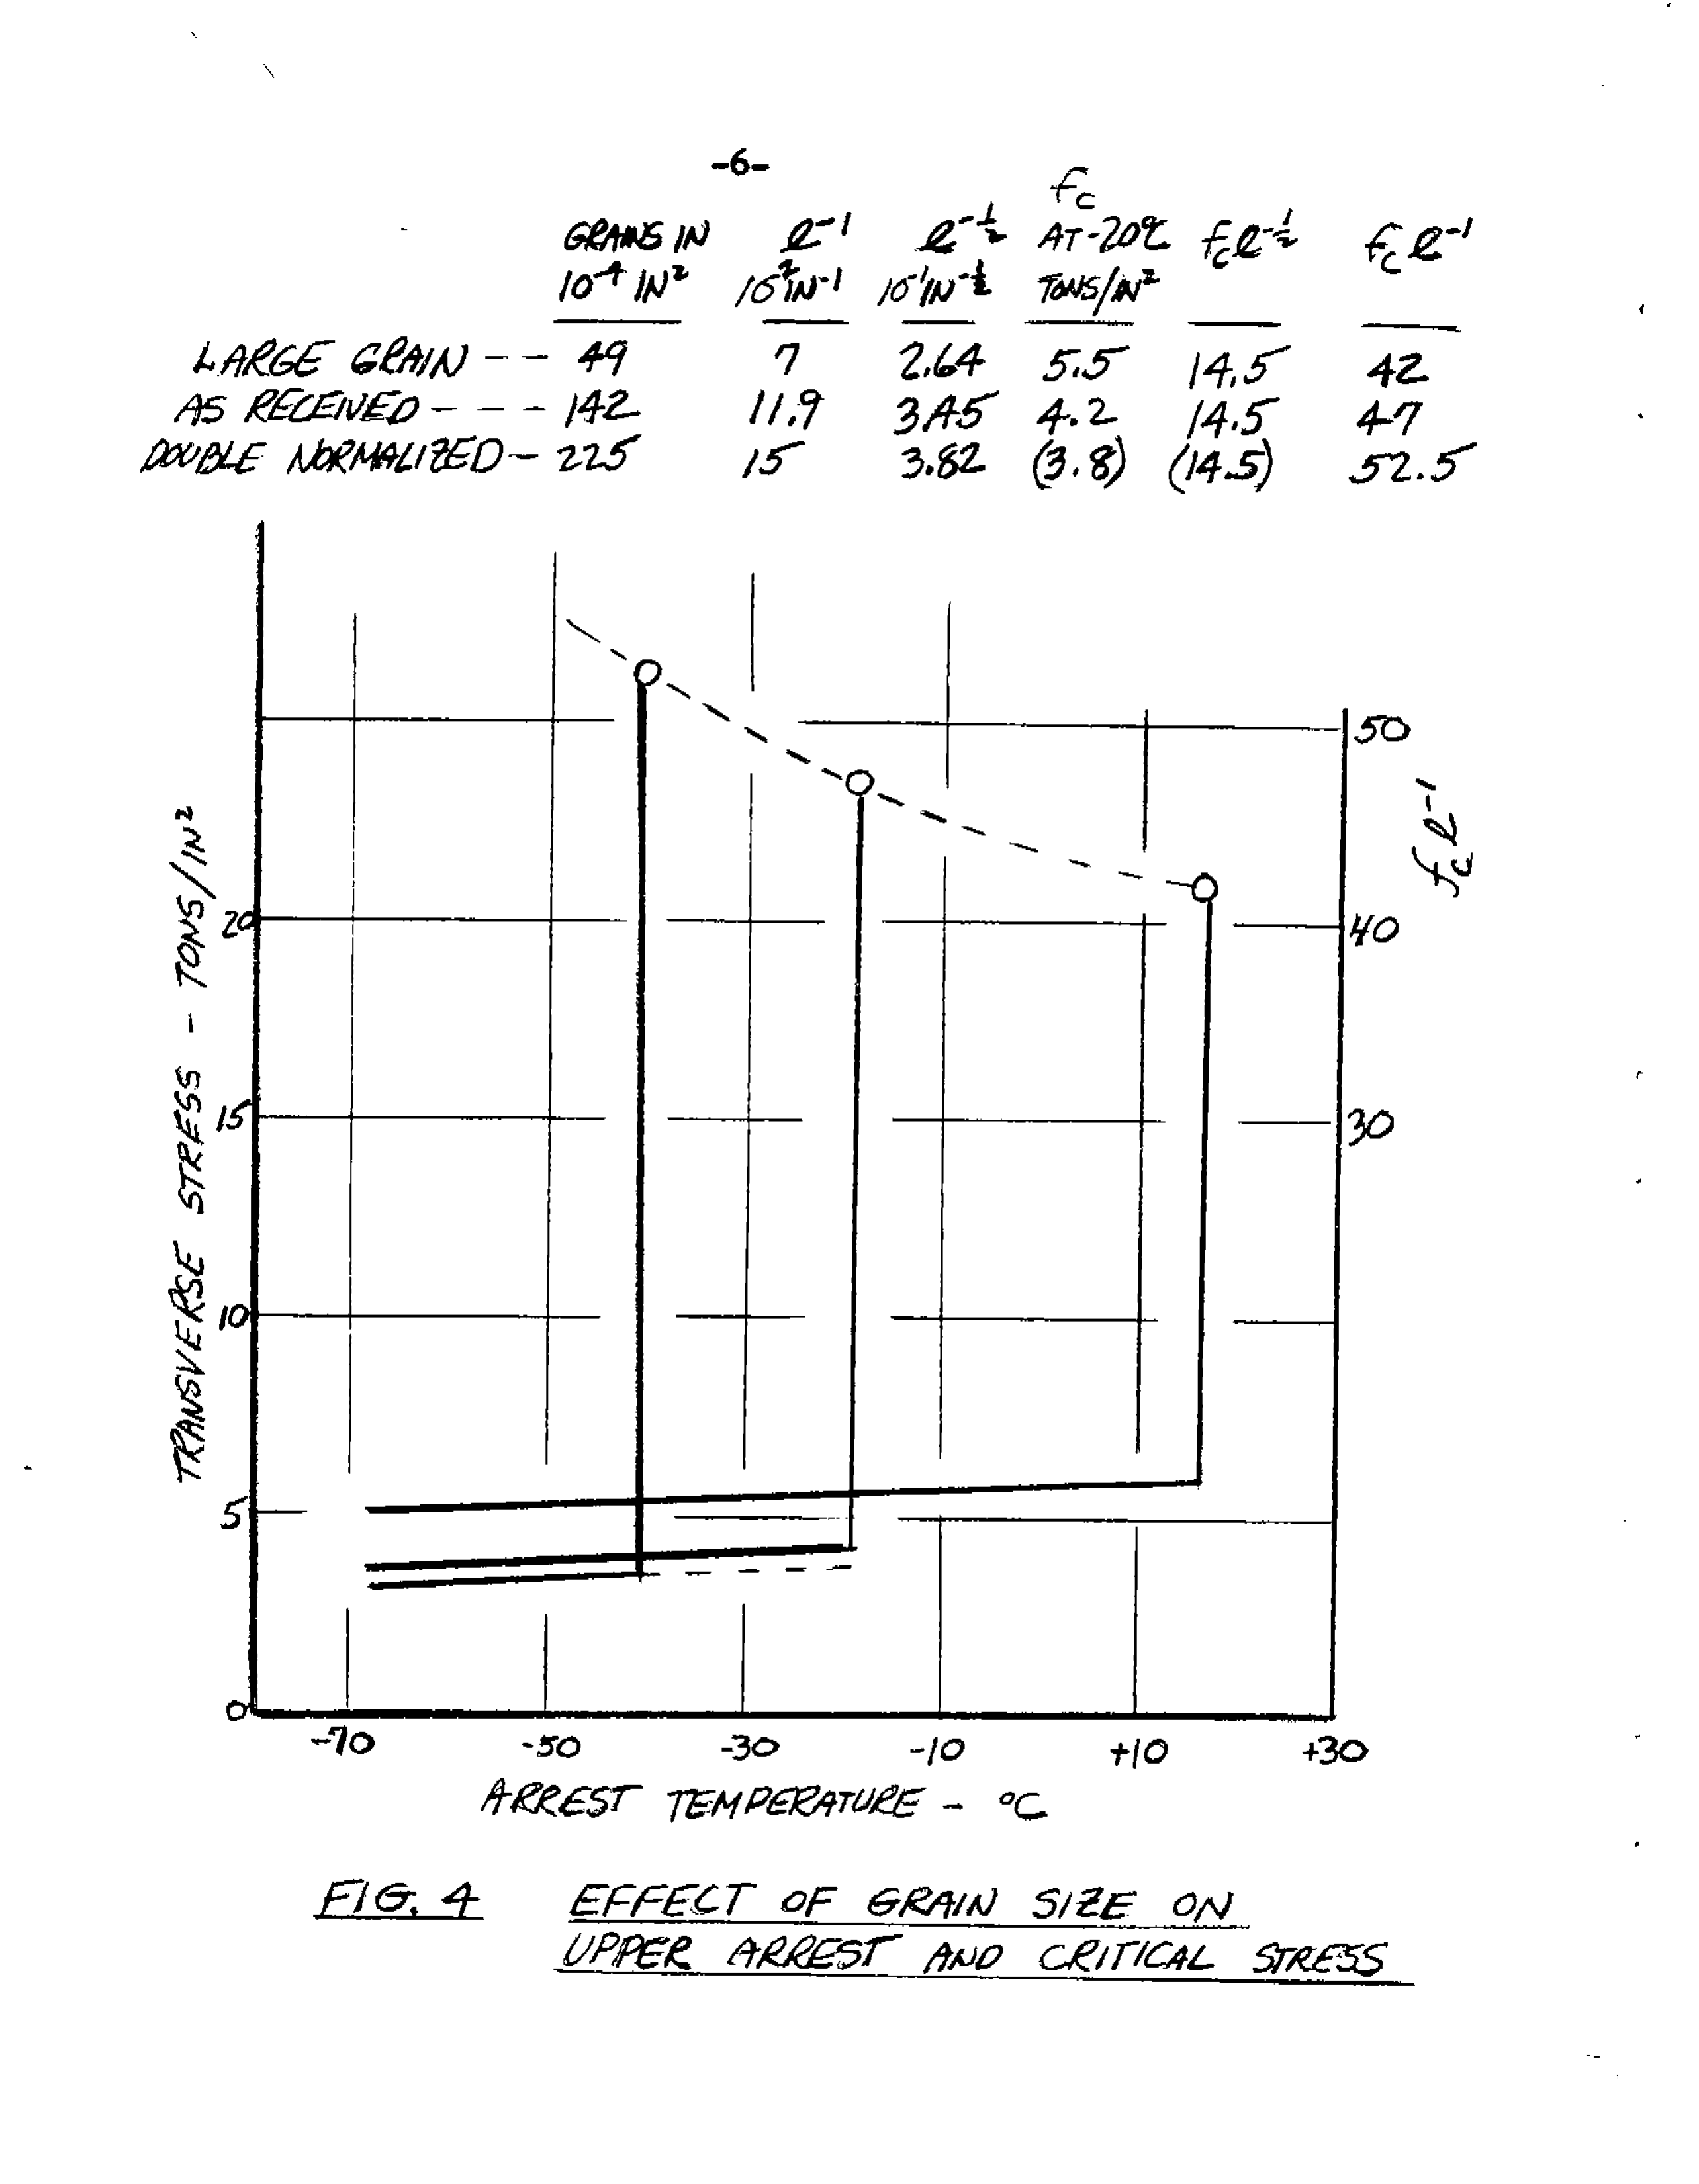 -6-
GRAINS IN 10⁻⁴ IN² ℓ⁻¹ 10² IN⁻¹ ℓ⁻½ 10¹ IN⁻½ f_c AT -20°C TONS/IN² f_cℓ⁻½ f_cℓ⁻¹
LARGE GRAIN -- 49 7 2.64 5.5 14.5 42
AS RECEIVED --- 142 11.9 3.45 4.2 14.5 47
DOUBLE NORMALIZED - 225 15 3.82 (3.8) (14.5) 52.5
TRANSVERSE STRESS - TONS/IN²
20
15
10
5
0
50
40
30
f_cℓ⁻¹
-70 -50 -30 -10 +10 +30
ARREST TEMPERATURE - °C
FIG. 4 EFFECT OF GRAIN SIZE ON
UPPER ARREST AND CRITICAL STRESS